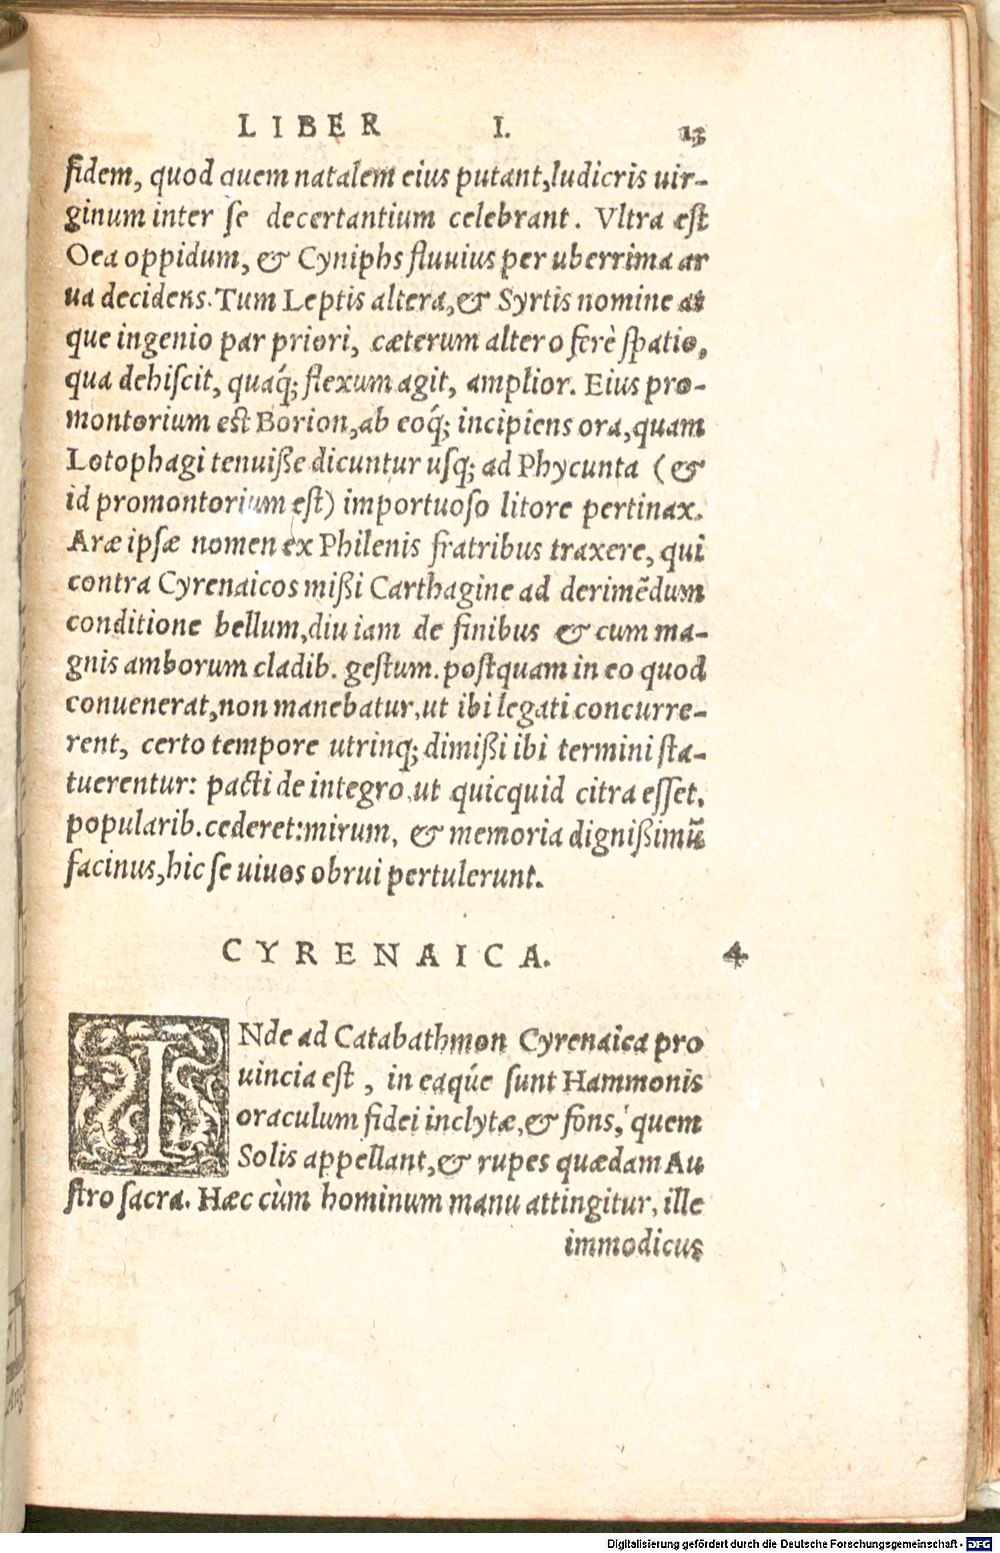 LIBER I. 13
fidem, quod quem natalem eius putant, ludicris uir-
ginum inter se decertantium celebrant. Vltra est
Oea oppidum, & Cyniphs fluuius per uberrima ar
ua decidens. Tum Leptis altera, & Syrtis nomine at
que ingenio par priori, cæterum altero ferè spatio,
qua dehiscit, quáq; flexum agit, amplior. Eius pro-
montorium est Borion, ab eoq́; incipiens ora, quam
Lotophagi tenuiße dicuntur usq; ad Phycunta (&
id promontorium est) importuoso litore pertinax.
Aræ ipsæ nomen ex Philenis fratribus traxere, qui
contra Cyrenaicos mißi Carthagine ad derimẽdum
conditione bellum, diu iam de finibus & cum ma-
gnis amborum cladib. gestum. postquam in eo quod
conuenerat, non manebatur, ut ibi legati concurre-
rent, certo tempore utrinq; dimißi ibi termini sta-
tuerentur: pacti de integro, ut quicquid citra esset,
popularib. cederet: mirum, & memoria dignißimũ
facinus, hic se uiuos obrui pertulerunt.
CYRENAICA. 4
INde ad Catabathmon Cyrenaica pro
uincia est, in eaq́ue sunt Hammonis
oraculum fidei inclytæ, & fons, quem
Solis appellant, & rupes quædam Au
stro sacra. Hæc cùm hominum manu attingitur, ille
immodicus
Digitalisierung gefördert durch die Deutsche Forschungsgemeinschaft - DFG